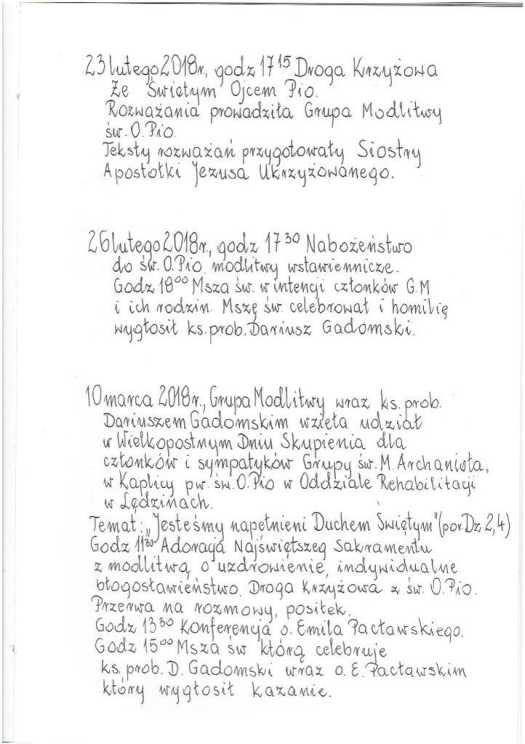 23 lutego 2018r, godz 17¹⁵ Droga Krzyżowa
Ze Świętym Ojcem Pio.
Rozważania prowadziła Grupa Modlitwy
św. O. Pio
Teksty rozważań przygotowały Siostry
Apostołki Jezusa Ukrzyżowanego.
26 lutego 2018r., godz 17³⁰ Nabożeństwo
do św. O. Pio, modlitwy wstawiennicze.
Godz 18⁰⁰ Msza św. w intencji członków G.M
i ich rodzin. Mszę św. celebrował i homilię
wygłosił ks. prob. Dariusz Gadomski.
10 marca 2018r., Grupa Modlitwy wraz ks. prob.
Dariuszem Gadomskim wzięła udział
w Wielkopostnym Dniu Skupienia dla
członków i sympatyków Grupy św. M. Archanioła,
w Kaplicy pw. św. O. Pio w Oddziale Rehabilitacji
w Lędzinach.
Temat: „Jesteśmy napełnieni Duchem Świętym" (por. Dz 2,4)
Godz 11³⁰ Adoracja Najświętszeg Sakramentu
z modlitwą o uzdrowienie, indywidualne
błogosławieństwo, Droga Krzyżowa z św. O. Pio.
Przerwa na rozmowy, posiłek.
Godz 13³⁰ Konferencja o. Emila Pacławskiego.
Godz 15⁰⁰ Msza św którą celebruje
ks. prob. D. Gadomski wraz o. E. Pacławskim
który wygłosił kazanie.